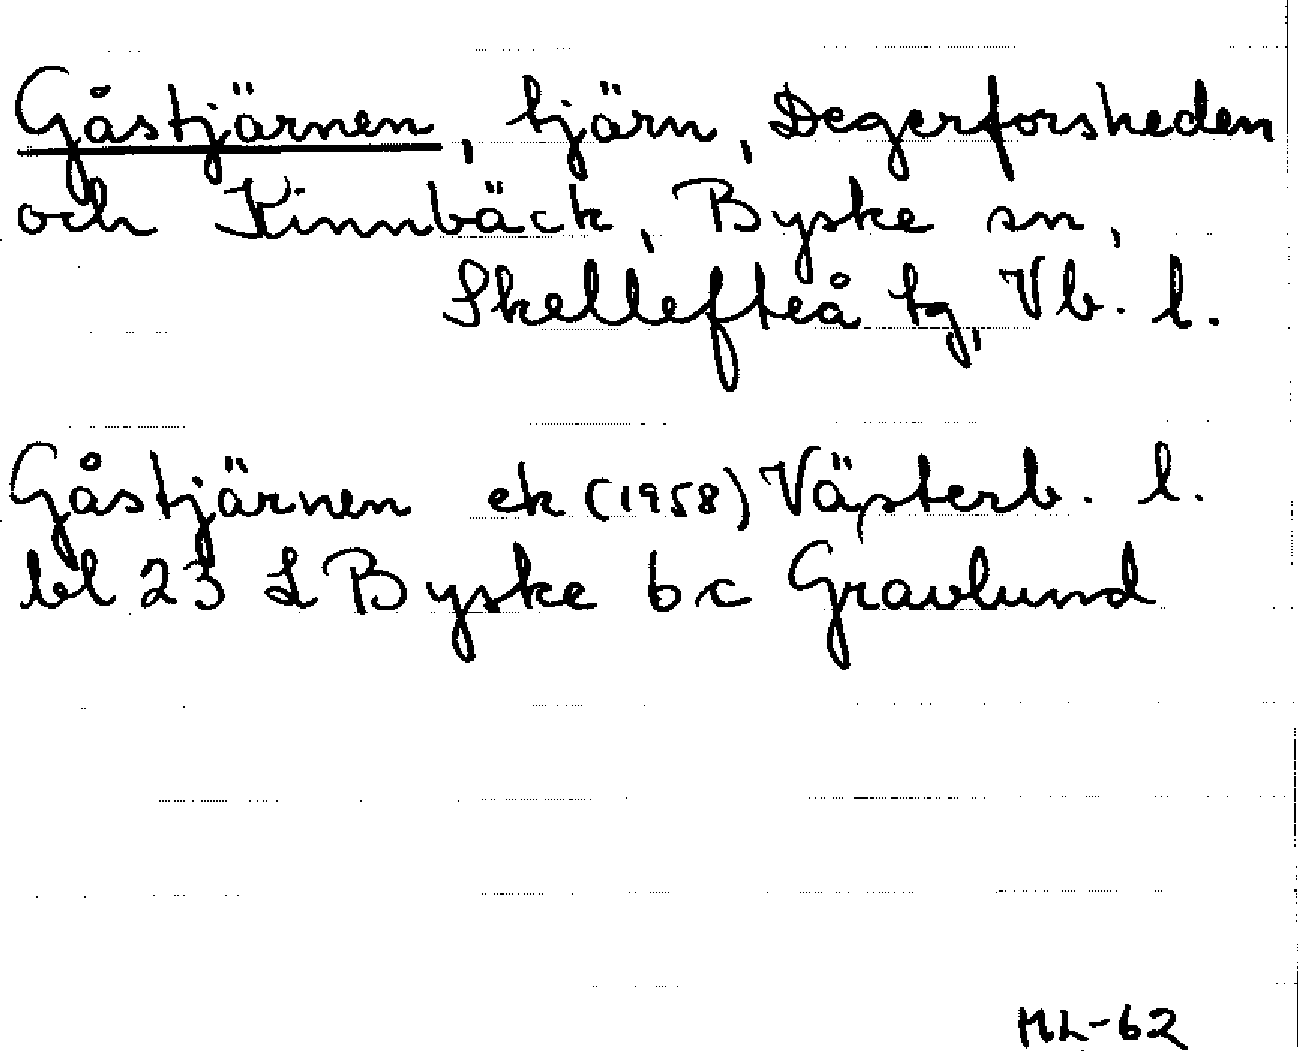 Gåstjärnen, tjärn, Degerforsheden
och Kinnbäck, Byske sn,
Skellefteå tg, Vb. l.
Gåstjärnen ek (1958) Västerb. l.
bl 23 L Byske bc Gravlund
ML-62